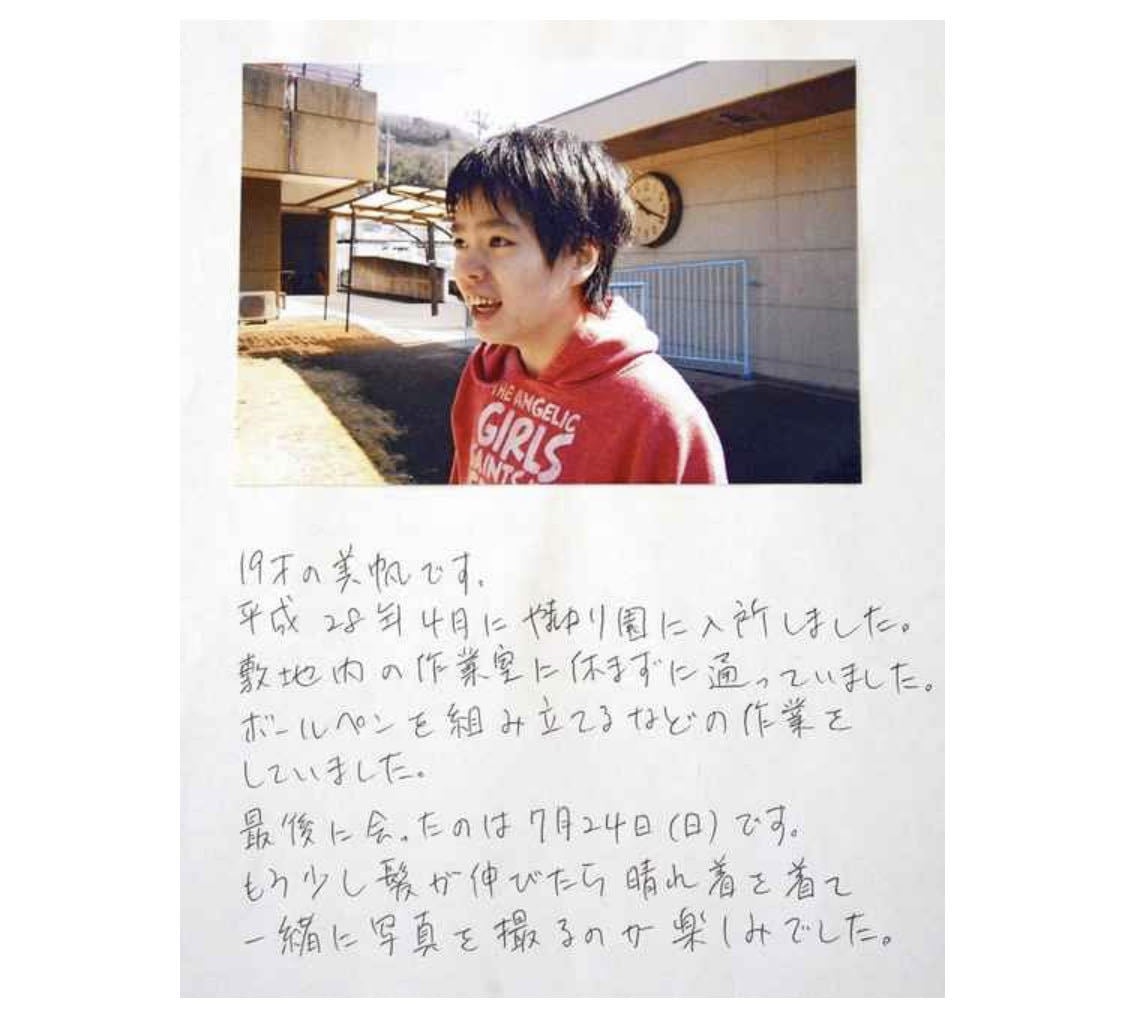 THE ANGELIC
GIRLS
SAINTS
19才の美帆です。
平成28年4月にやまゆり園に入所しました。
敷地内の作業室に休まずに通っていました。
ボールペンを組み立てるなどの作業を
していました。
最後に会ったのは7月24日(日)です。
もう少し髪が伸びたら晴れ着を着て
一緒に写真を撮るのが楽しみでした。